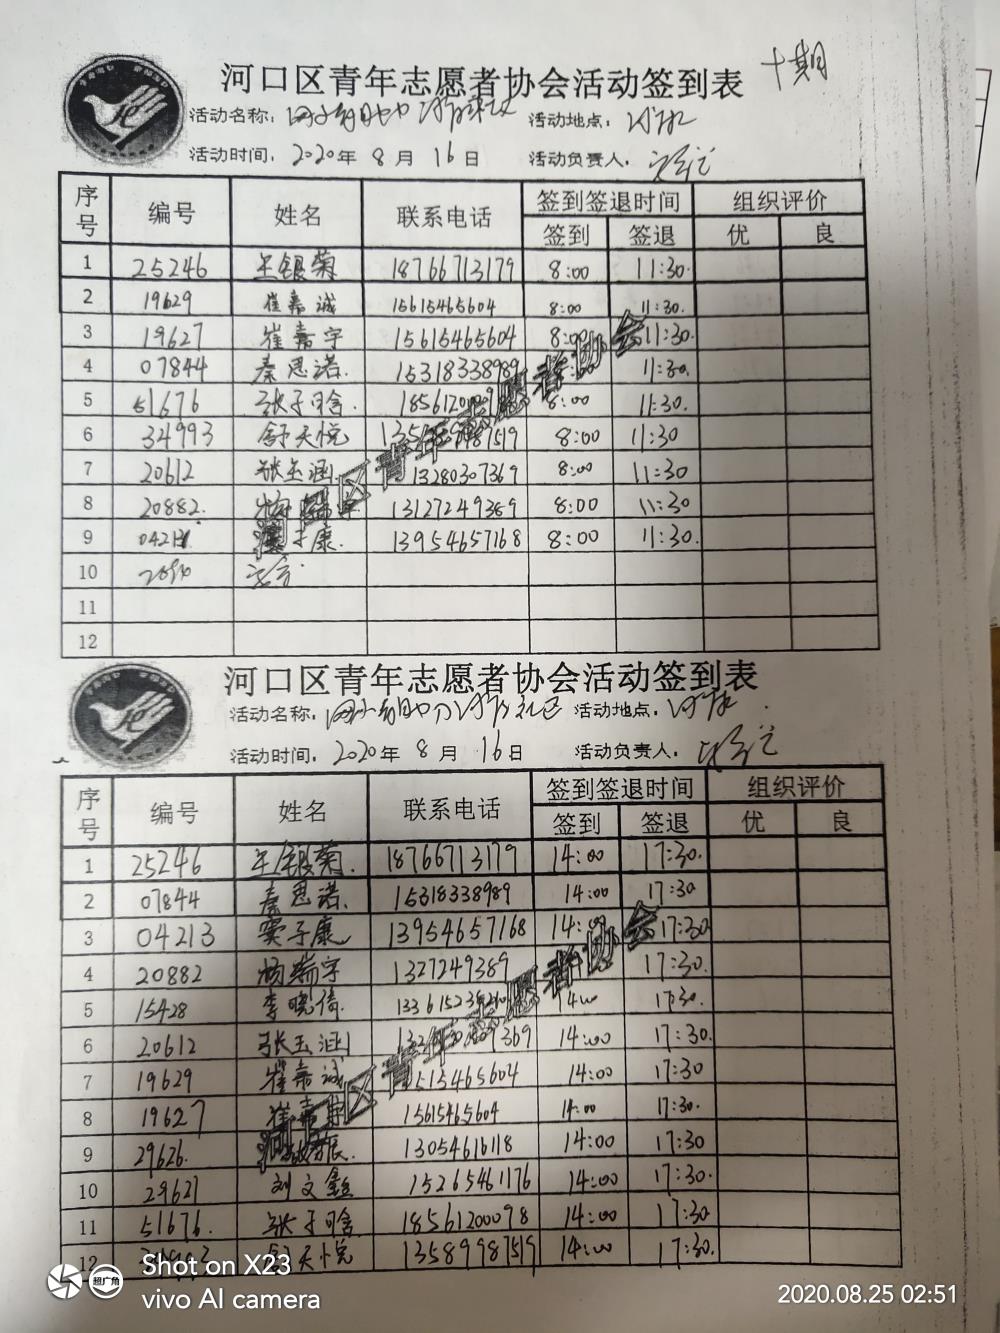 十期
河口区青年志愿者协会活动签到表
活动名称: 活动地点:
活动时间: 2020年 8 月 16 日 活动负责人:
序号 编号 姓名 联系电话 签到签退时间 组织评价
签到 签退 优 良
1 25246 王银菊 18766713179 8:00 11:30
2 19629 崔嘉诚 15615465604 8:00 11:30.
3 19627 崔嘉宇 15615465604 8:00 11:30.
4 07844 秦思诺. 15318338989 11:30.
5 51676 张子晗. 8:00 11:30.
6 34993 舒天悦 8:00 11:30
7 20612 张玉涵 13280307369 8:00 11:30
8 20882. 13127249389 8:00 11:30
9 子康. 13954657168 8:00 11:30.
10
11
12
河口区青年志愿者协会
河口区青年志愿者协会活动签到表
活动名称: 活动地点:
活动时间: 2020年 8 月 16日 活动负责人:
序号 编号 姓名 联系电话 签到签退时间 组织评价
签到 签退 优 良
1 25246 王银菊 18766713179 14:00 17:30.
2 07844 秦思诺. 15318338989 14:00 17:30
3 04213 窦子康 13954657168 14:00 17:30
4 20882 杨瑞宇 1327249389 17:30.
5 15428 李晓倩 17:30.
6 20612 张玉涵 14:00 17:30.
7 19629 崔嘉诚 14:00 17:30
8 19627 崔嘉宇 15615465604 14:00 17:30.
9 29626. 13054616118 14:00 17:30
10 29627 刘文鑫 15265461176 14:00 17:30.
11 51676. 张子晗 18561200098 14:00 17:30
12 舒天悦 13589987519 14:00 17:30.
河口区青年志愿者协会
超广角
Shot on X23
vivo AI camera
2020.08.25 02:51